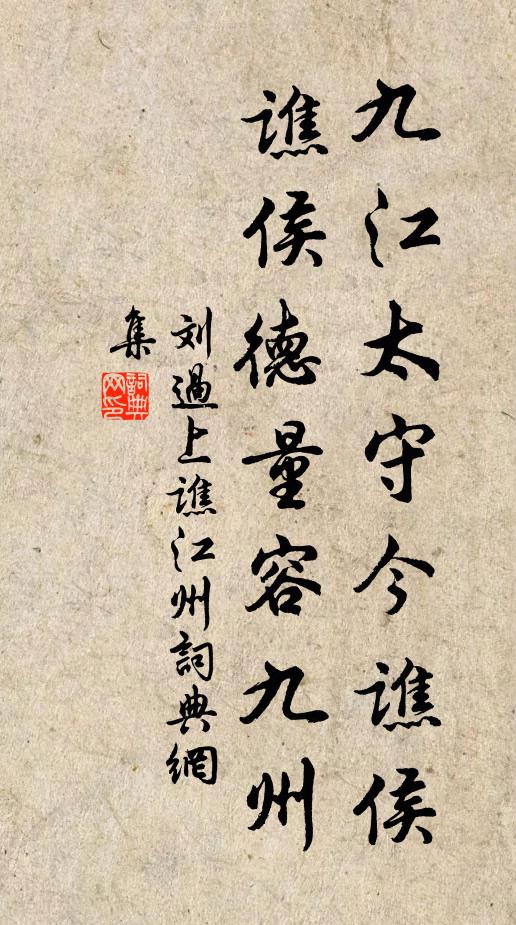 九江太守今譙侯
譙侯德量容九州
刘過上譙江州詞典網
集
詞典
网印